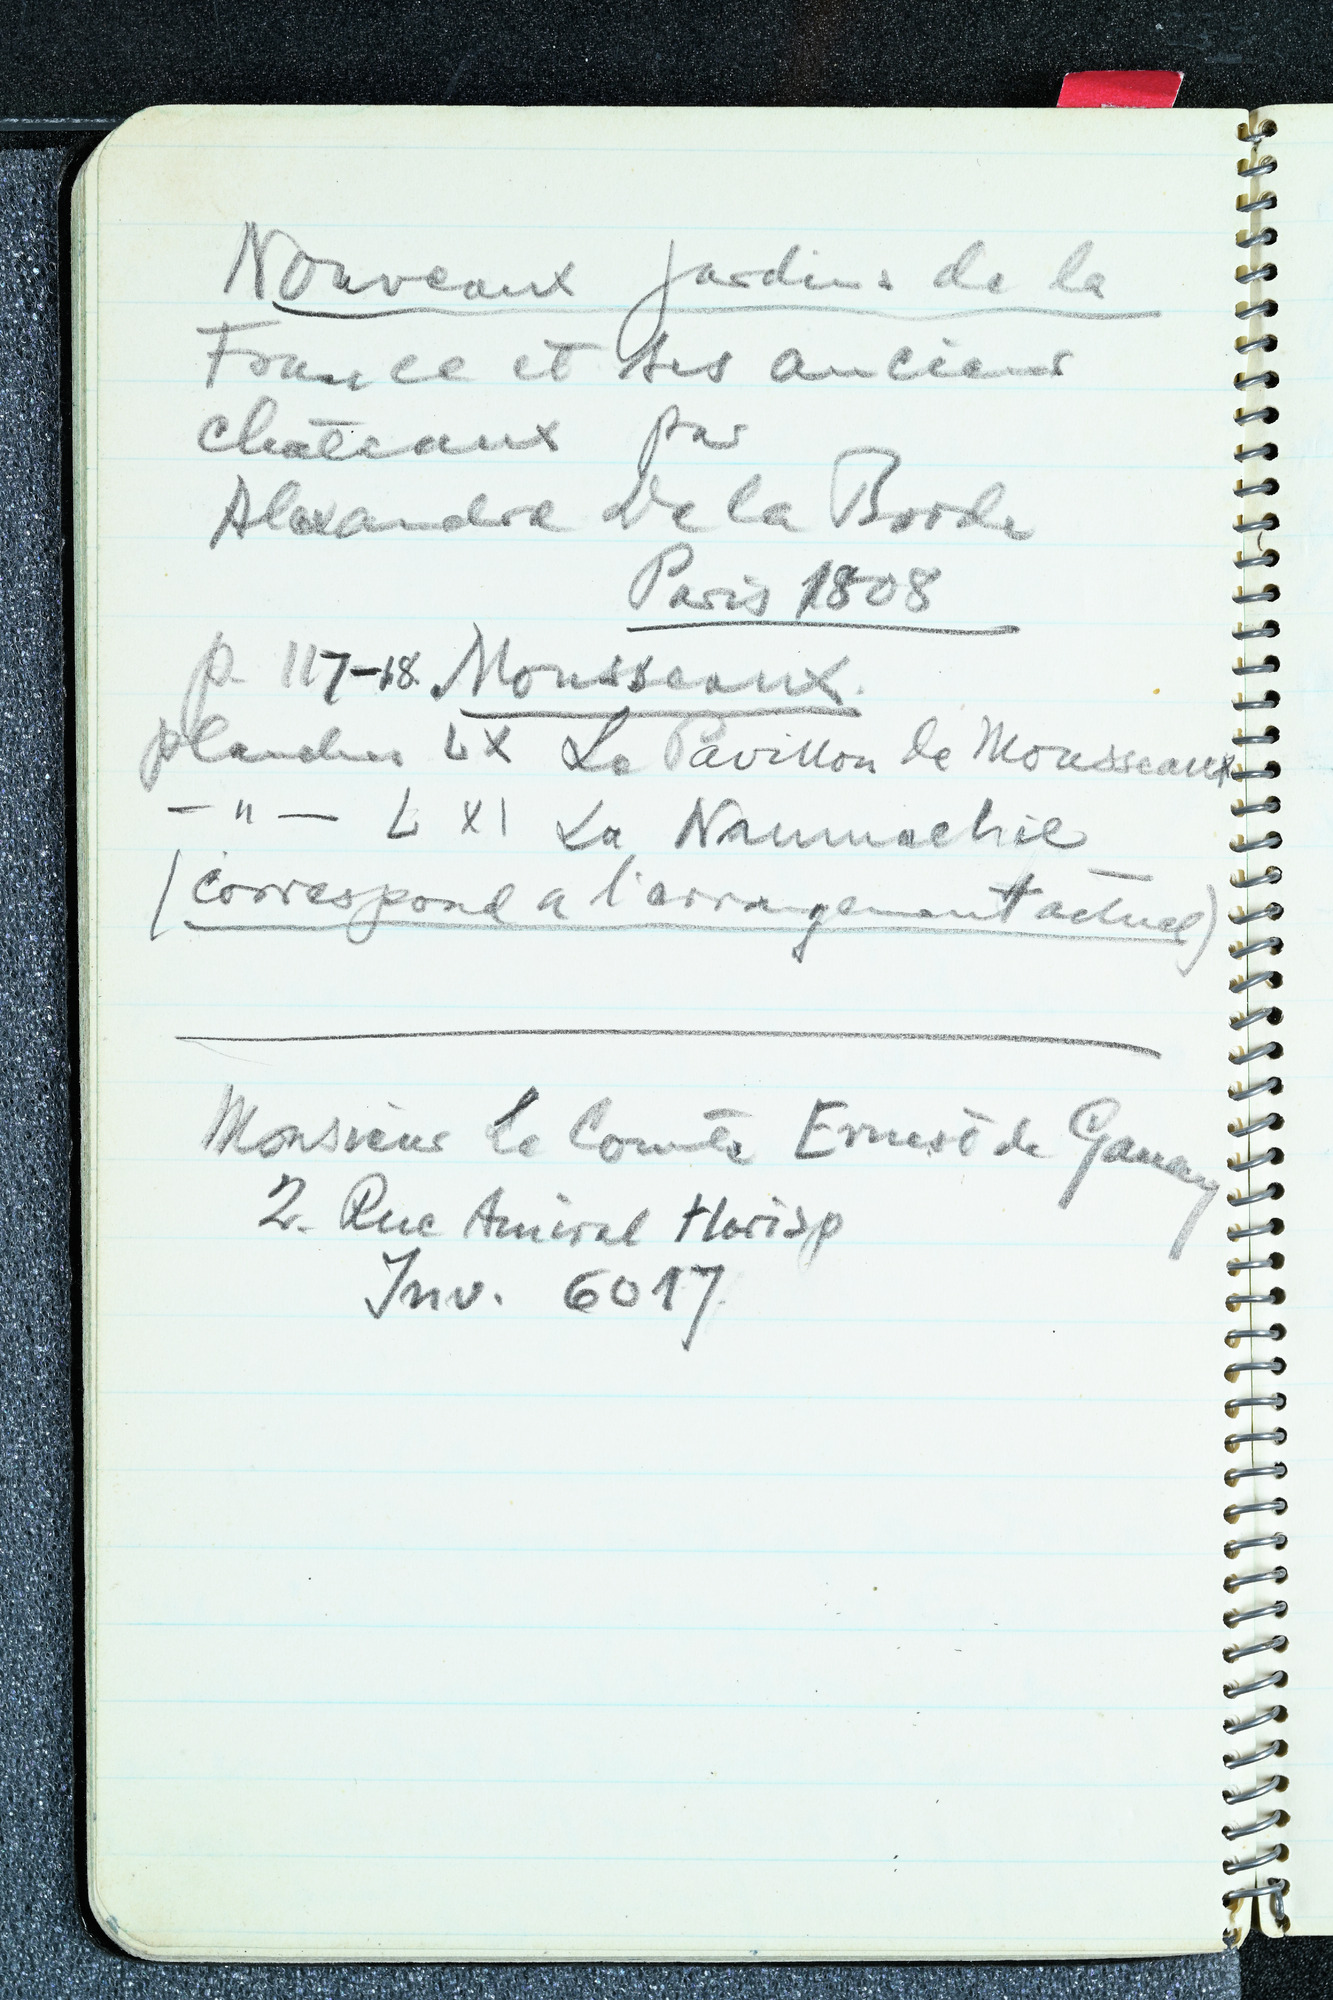 Nouveaux jardins de la
France et ses anciens
châteaux par
Alexandre De la Borde
Paris 1808
p. 117-18. Mousseaux.
planches LX Le Pavillon de Mousseaux
– " – LXI La Naumachie
(correspond a l'arrangement actuel)
Monsieur Le Comte Ernest de Ganay
2. Rue Amiral Harisp
Inv. 6017